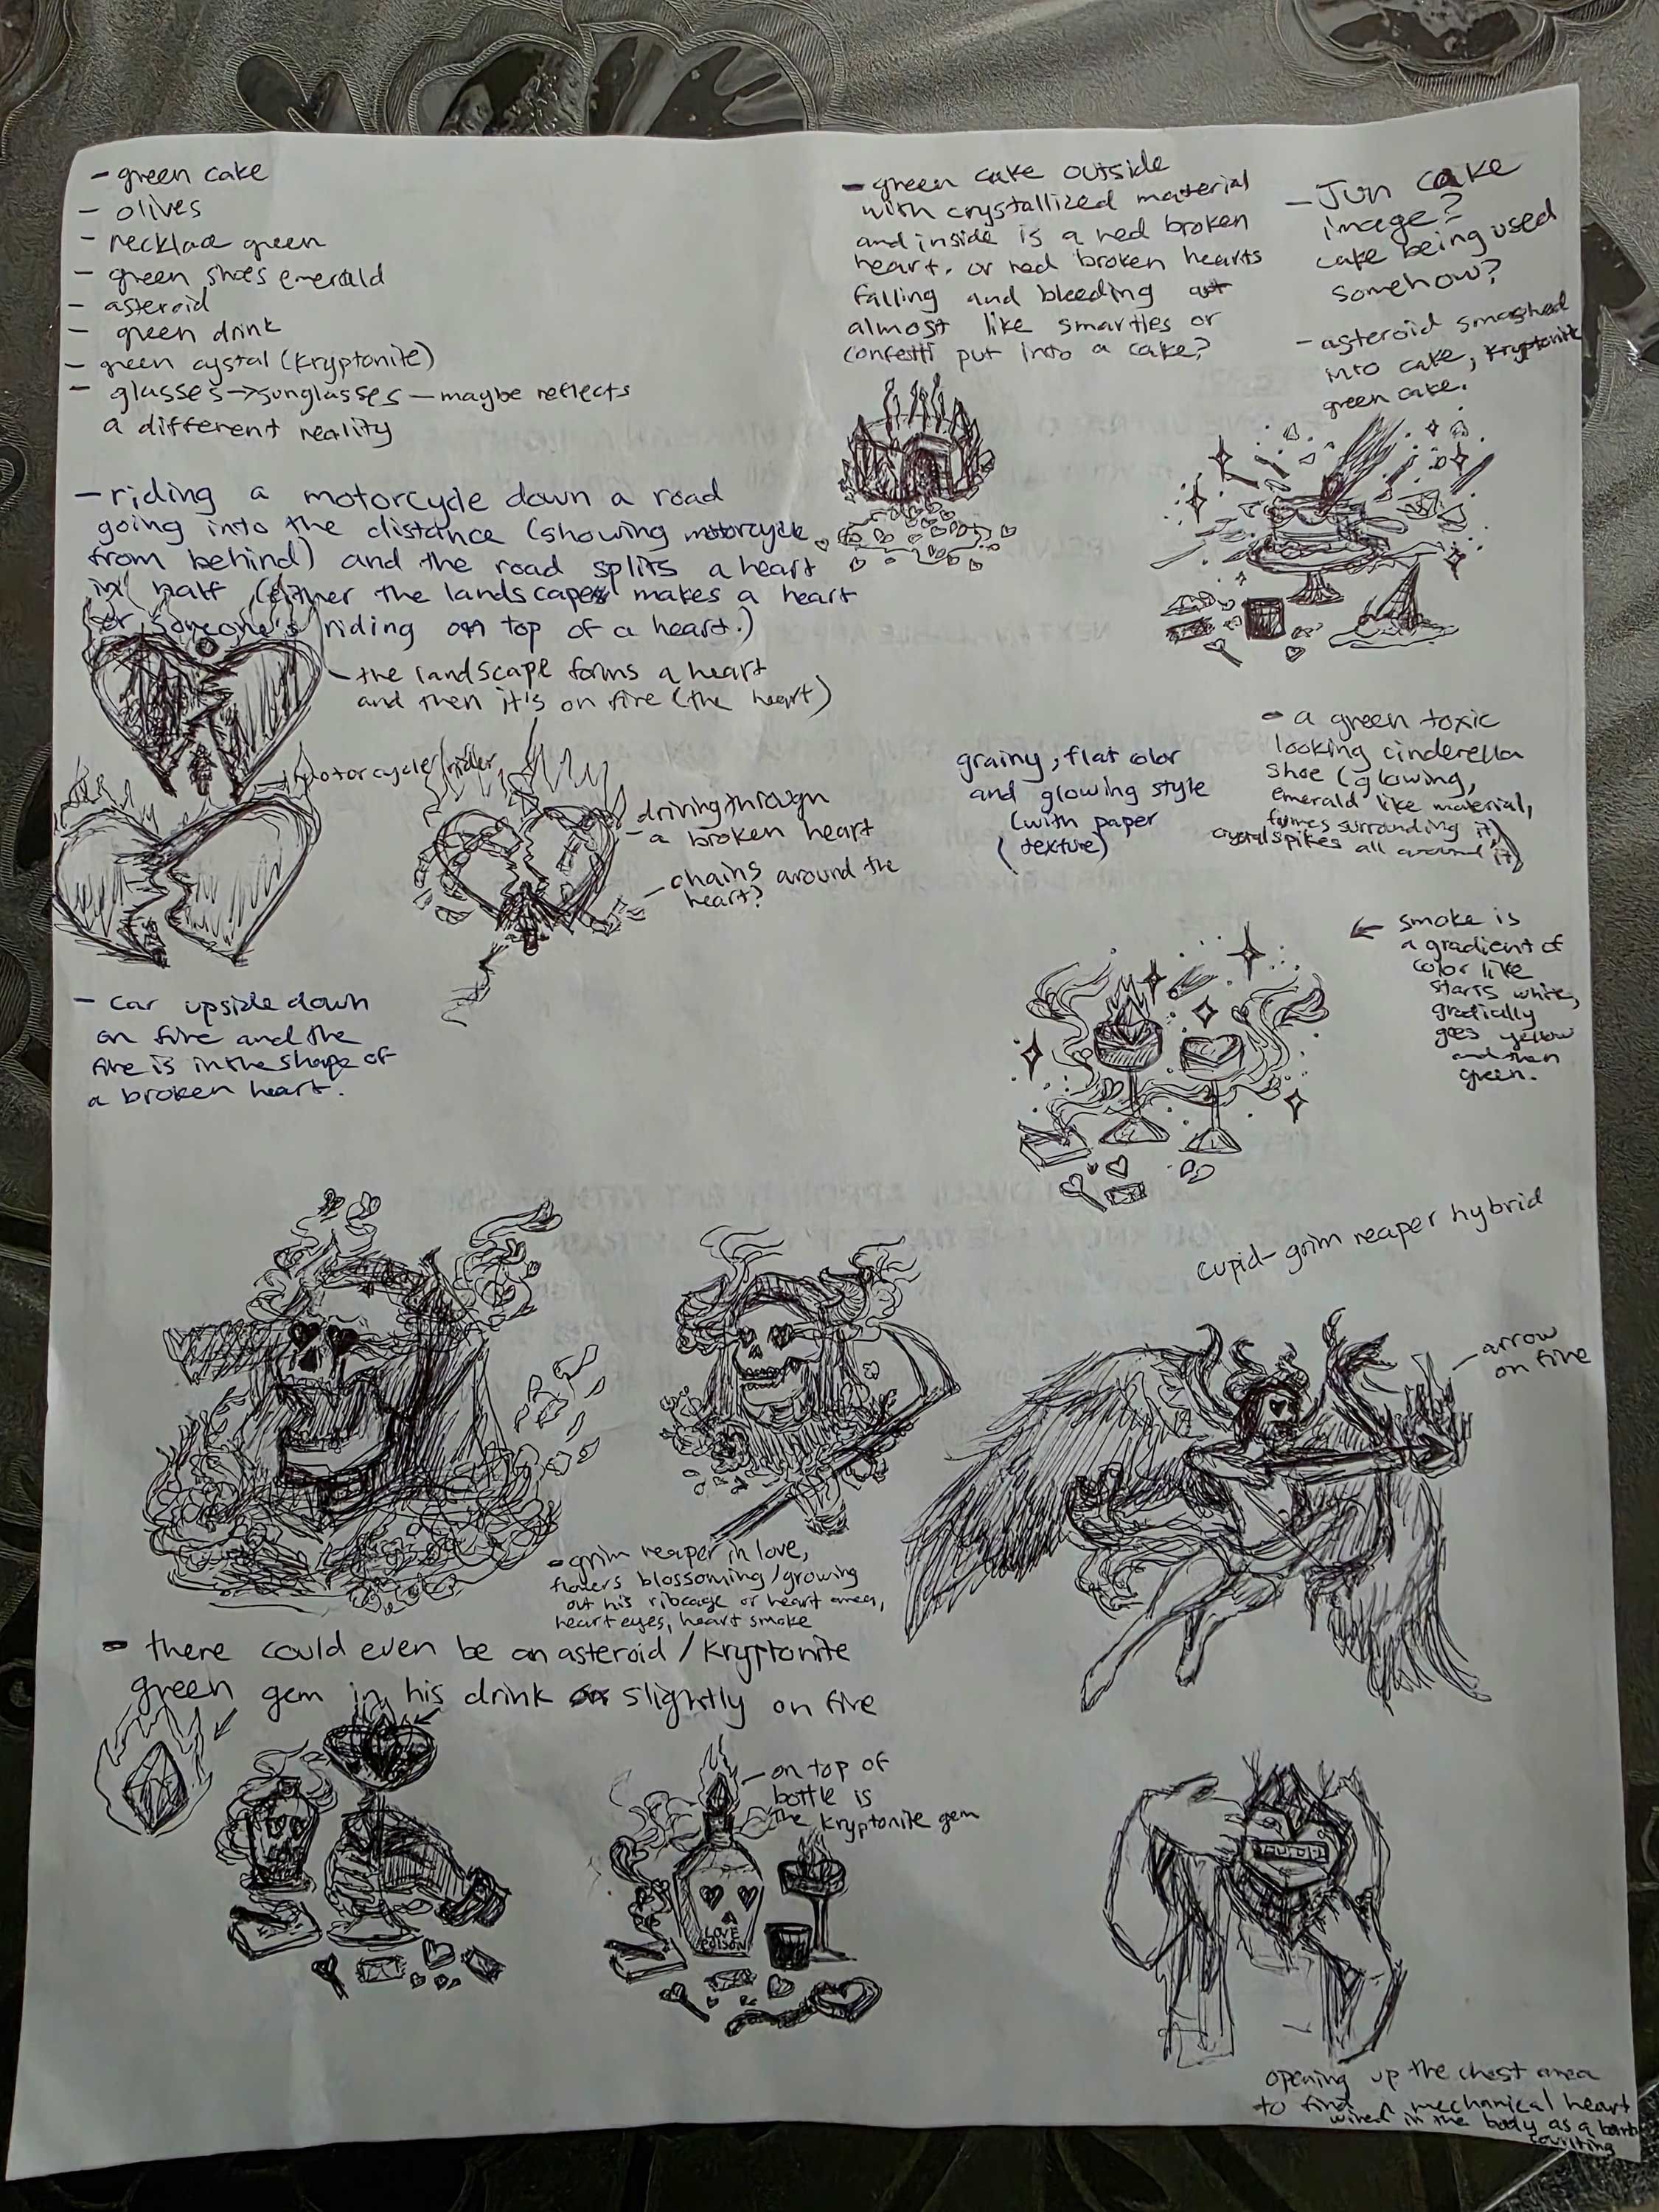 - green cake
- olives
- necklace green
- green shoes emerald
- asteroid
- green drink
- green cystal (kryptonite)
- glasses → sunglasses — maybe reflects
a different reality
- riding a motorcycle down a road
going into the distance (showing motorcycle
from behind) and the road splits a heart
in half (either the landscapes makes a heart
or someone's riding on top of a heart.)
- the landscape forms a heart
and then it's on fire (the heart)
motorcycle/rider
driving through
- a broken heart
- chains around the
heart?
- car upside down
on fire and the
fire is in the shape of
a broken heart.
- green cake outside
with crystallized material
and inside is a red broken
heart. or red broken hearts
falling and bleeding out
almost like smarties or
confetti put into a cake?
- Jun cake
image?
cake being used
somehow?
- asteroid smashed
into cake, kryptonite
green cake.
grainy, flat color
and glowing style
(with paper
texture)
- a green toxic
looking cinderella
shoe (glowing,
emerald like material,
fumes surrounding it,
crystal spikes all around it)
← smoke is
a gradient of
color like
starts white,
gradially
goes yellow
and then
green.
cupid-grim reaper hybrid
- arrow
on fire
- grim reaper in love,
flowers blossoming/growing
out his ribcage or heart area,
heart eyes, heart smoke
- there could even be an asteroid / kryptonite
green gem in his drink slightly on fire
- on top of
bottle is
the kryptonite gem
LOVE
POISON
opening up the chest area
to find a mechanical heart
wired in the body as a bomb
counting